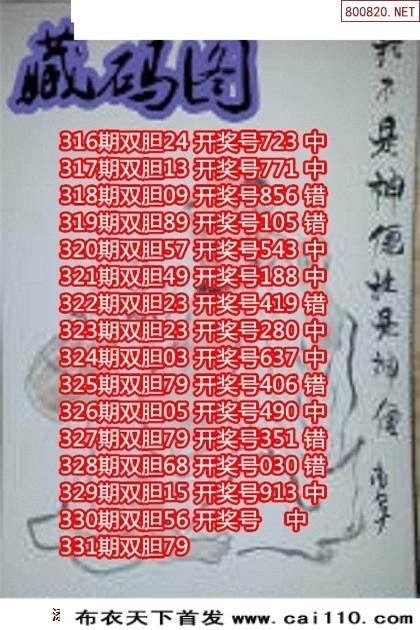 800820.NET
藏码图
316期双胆24 开奖号723 中
317期双胆13 开奖号771 中
318期双胆09 开奖号856 错
319期双胆89 开奖号105 错
320期双胆57 开奖号543 中
321期双胆49 开奖号188 中
322期双胆23 开奖号419 错
323期双胆23 开奖号280 中
324期双胆03 开奖号637 中
325期双胆79 开奖号406 错
326期双胆05 开奖号490 中
327期双胆79 开奖号351 错
328期双胆68 开奖号030 错
329期双胆15 开奖号913 中
330期双胆56 开奖号 中
331期双胆79
不是神仙
是神仙
布衣天下首发 www.cai110.com